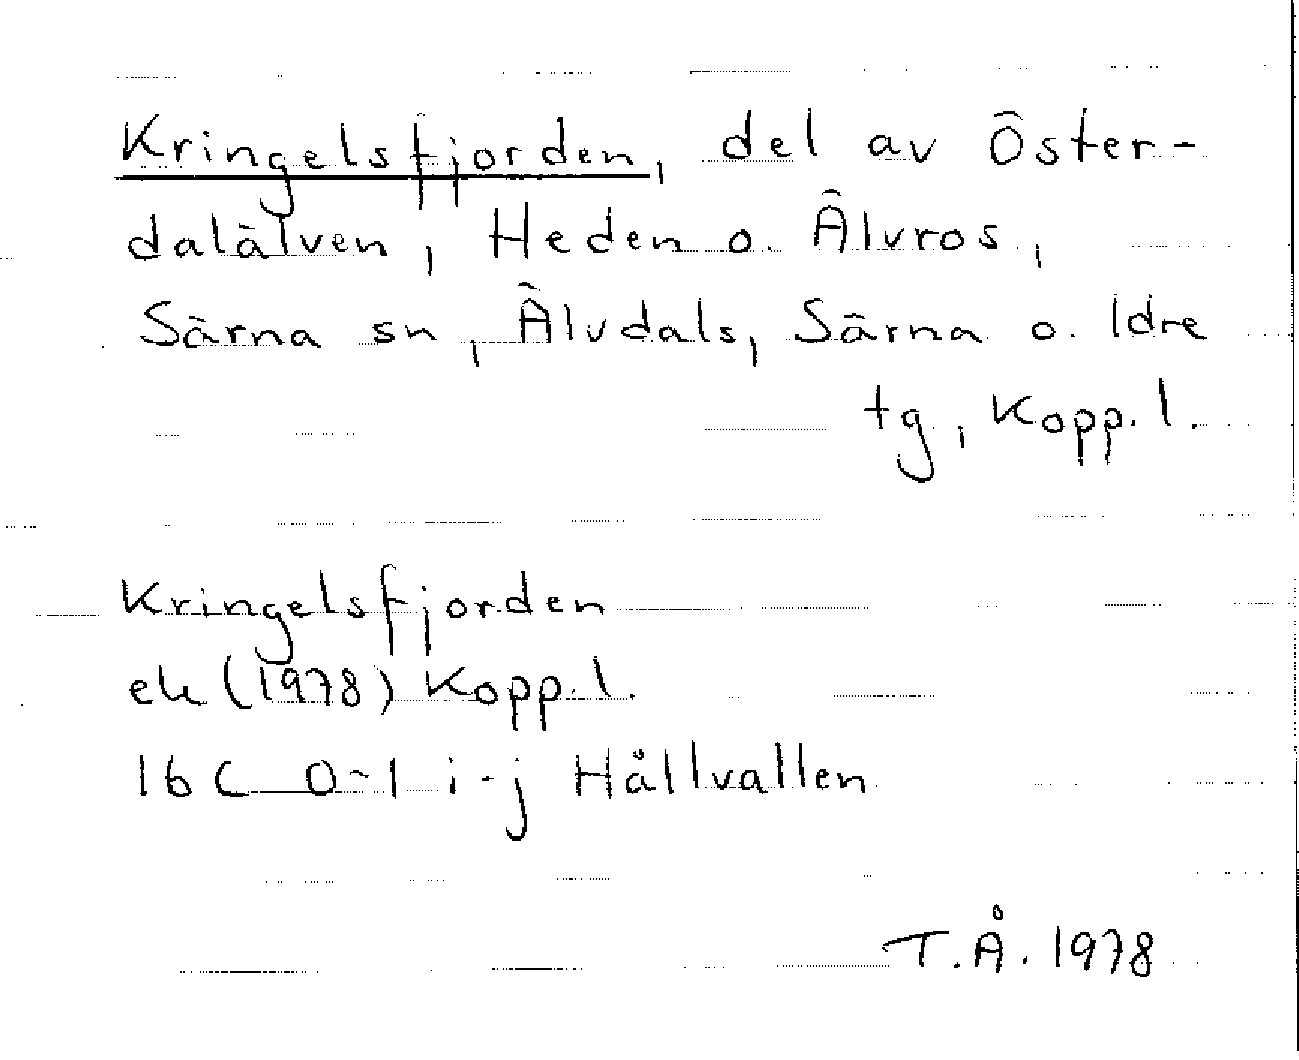 Kringelsfjorden, del av Öster-
dalälven, Heden o. Älvros,
Särna sn, Älvdals, Särna o. Idre
tg, Kopp. l.
Kringelsfjorden
ek (1978) Kopp. l.
16 C 0-1 i-j Hållvallen
T.Å. 1978